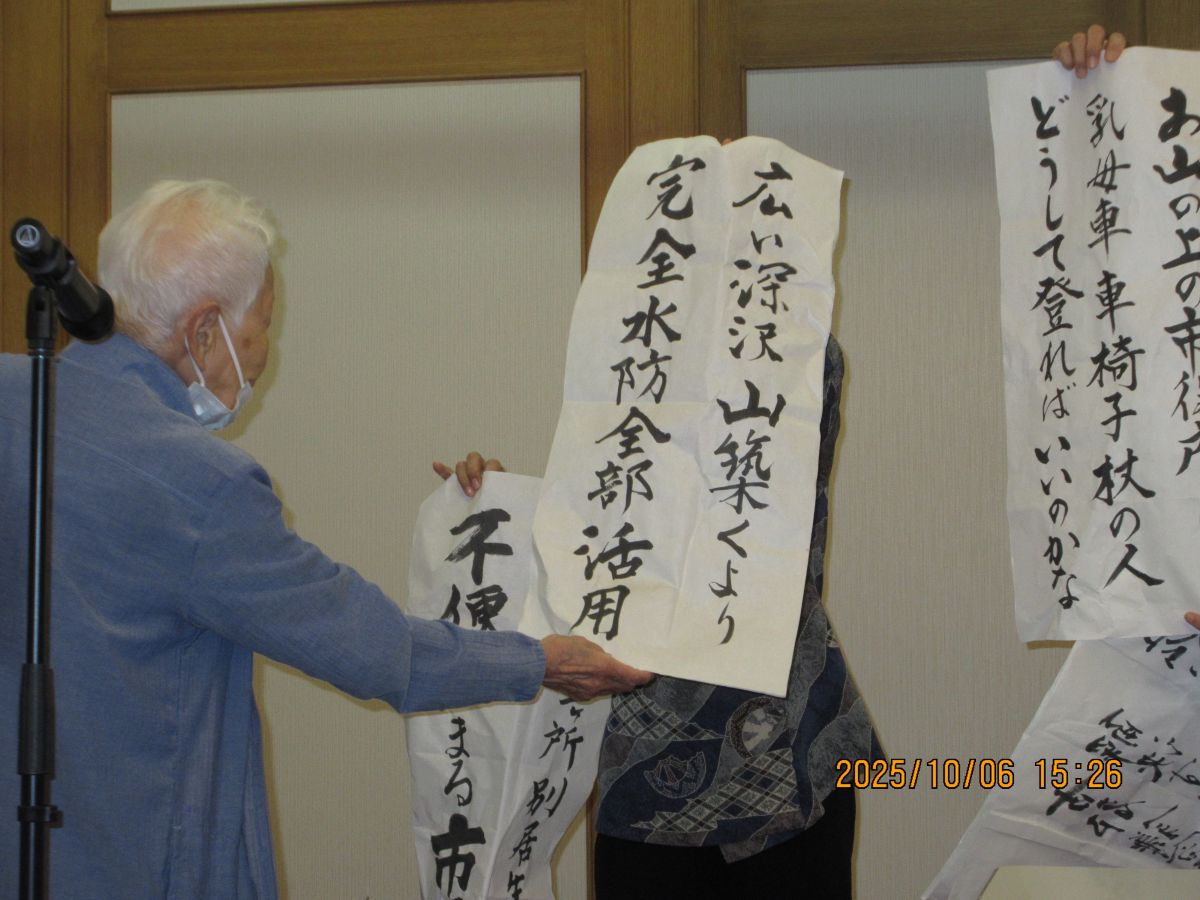 お山の上の市役所
乳母車車椅子杖の人
どうして登ればいいのかな
広い深沢山築くより
完全水防全部活用
所別居生
不便
まる市
2025/10/06 15:26